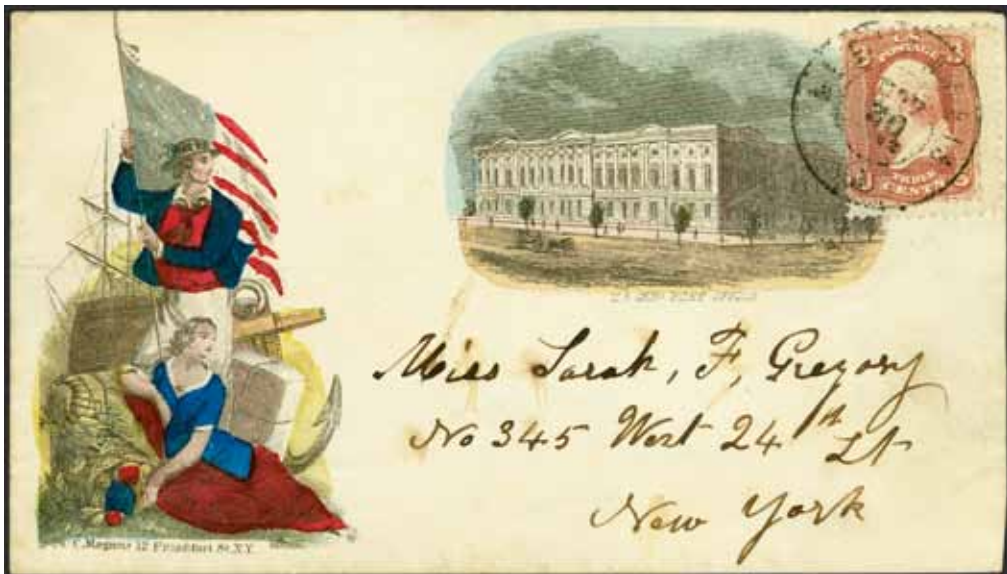 U.S.
POSTAGE
3 3
THREE
CENTS
Miss Sarah, F, Gregory
No 345 West 24th St
New York
C. Magnus 12 Frankfort St. N.Y.